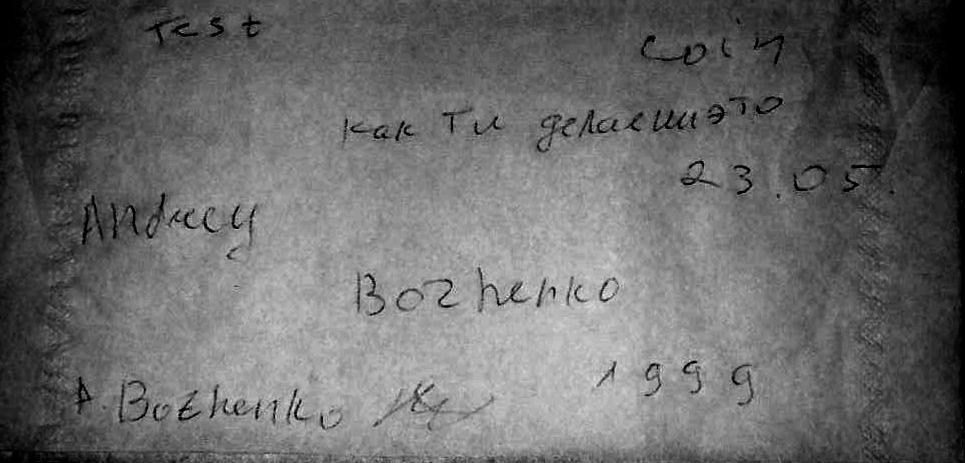 Test
Coin
как ты делаеш это
23.05.
Andrey
Bozhenko
1999
A. Bozhenko